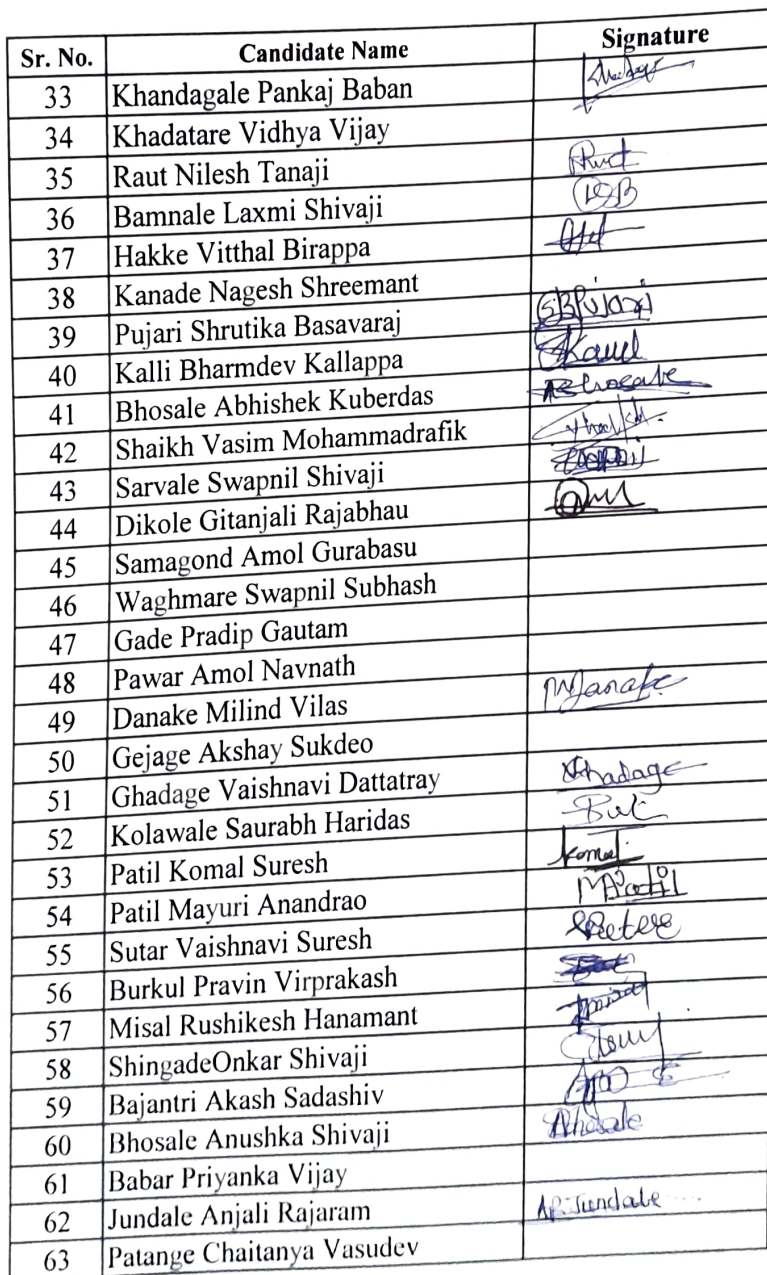 Sr. No. Candidate Name Signature
33 Khandagale Pankaj Baban
34 Khadatare Vidhya Vijay
35 Raut Nilesh Tanaji
36 Bamnale Laxmi Shivaji
37 Hakke Vitthal Birappa
38 Kanade Nagesh Shreemant
39 Pujari Shrutika Basavaraj SBPujari
40 Kalli Bharmdev Kallappa
41 Bhosale Abhishek Kuberdas
42 Shaikh Vasim Mohammadrafik
43 Sarvale Swapnil Shivaji
44 Dikole Gitanjali Rajabhau
45 Samagond Amol Gurabasu
46 Waghmare Swapnil Subhash
47 Gade Pradip Gautam
48 Pawar Amol Navnath
49 Danake Milind Vilas
50 Gejage Akshay Sukdeo
51 Ghadage Vaishnavi Dattatray
52 Kolawale Saurabh Haridas
53 Patil Komal Suresh Komal
54 Patil Mayuri Anandrao
55 Sutar Vaishnavi Suresh
56 Burkul Pravin Virprakash
57 Misal Rushikesh Hanamant
58 ShingadeOnkar Shivaji
59 Bajantri Akash Sadashiv
60 Bhosale Anushka Shivaji
61 Babar Priyanka Vijay
62 Jundale Anjali Rajaram AR Jundale
63 Patange Chaitanya Vasudev